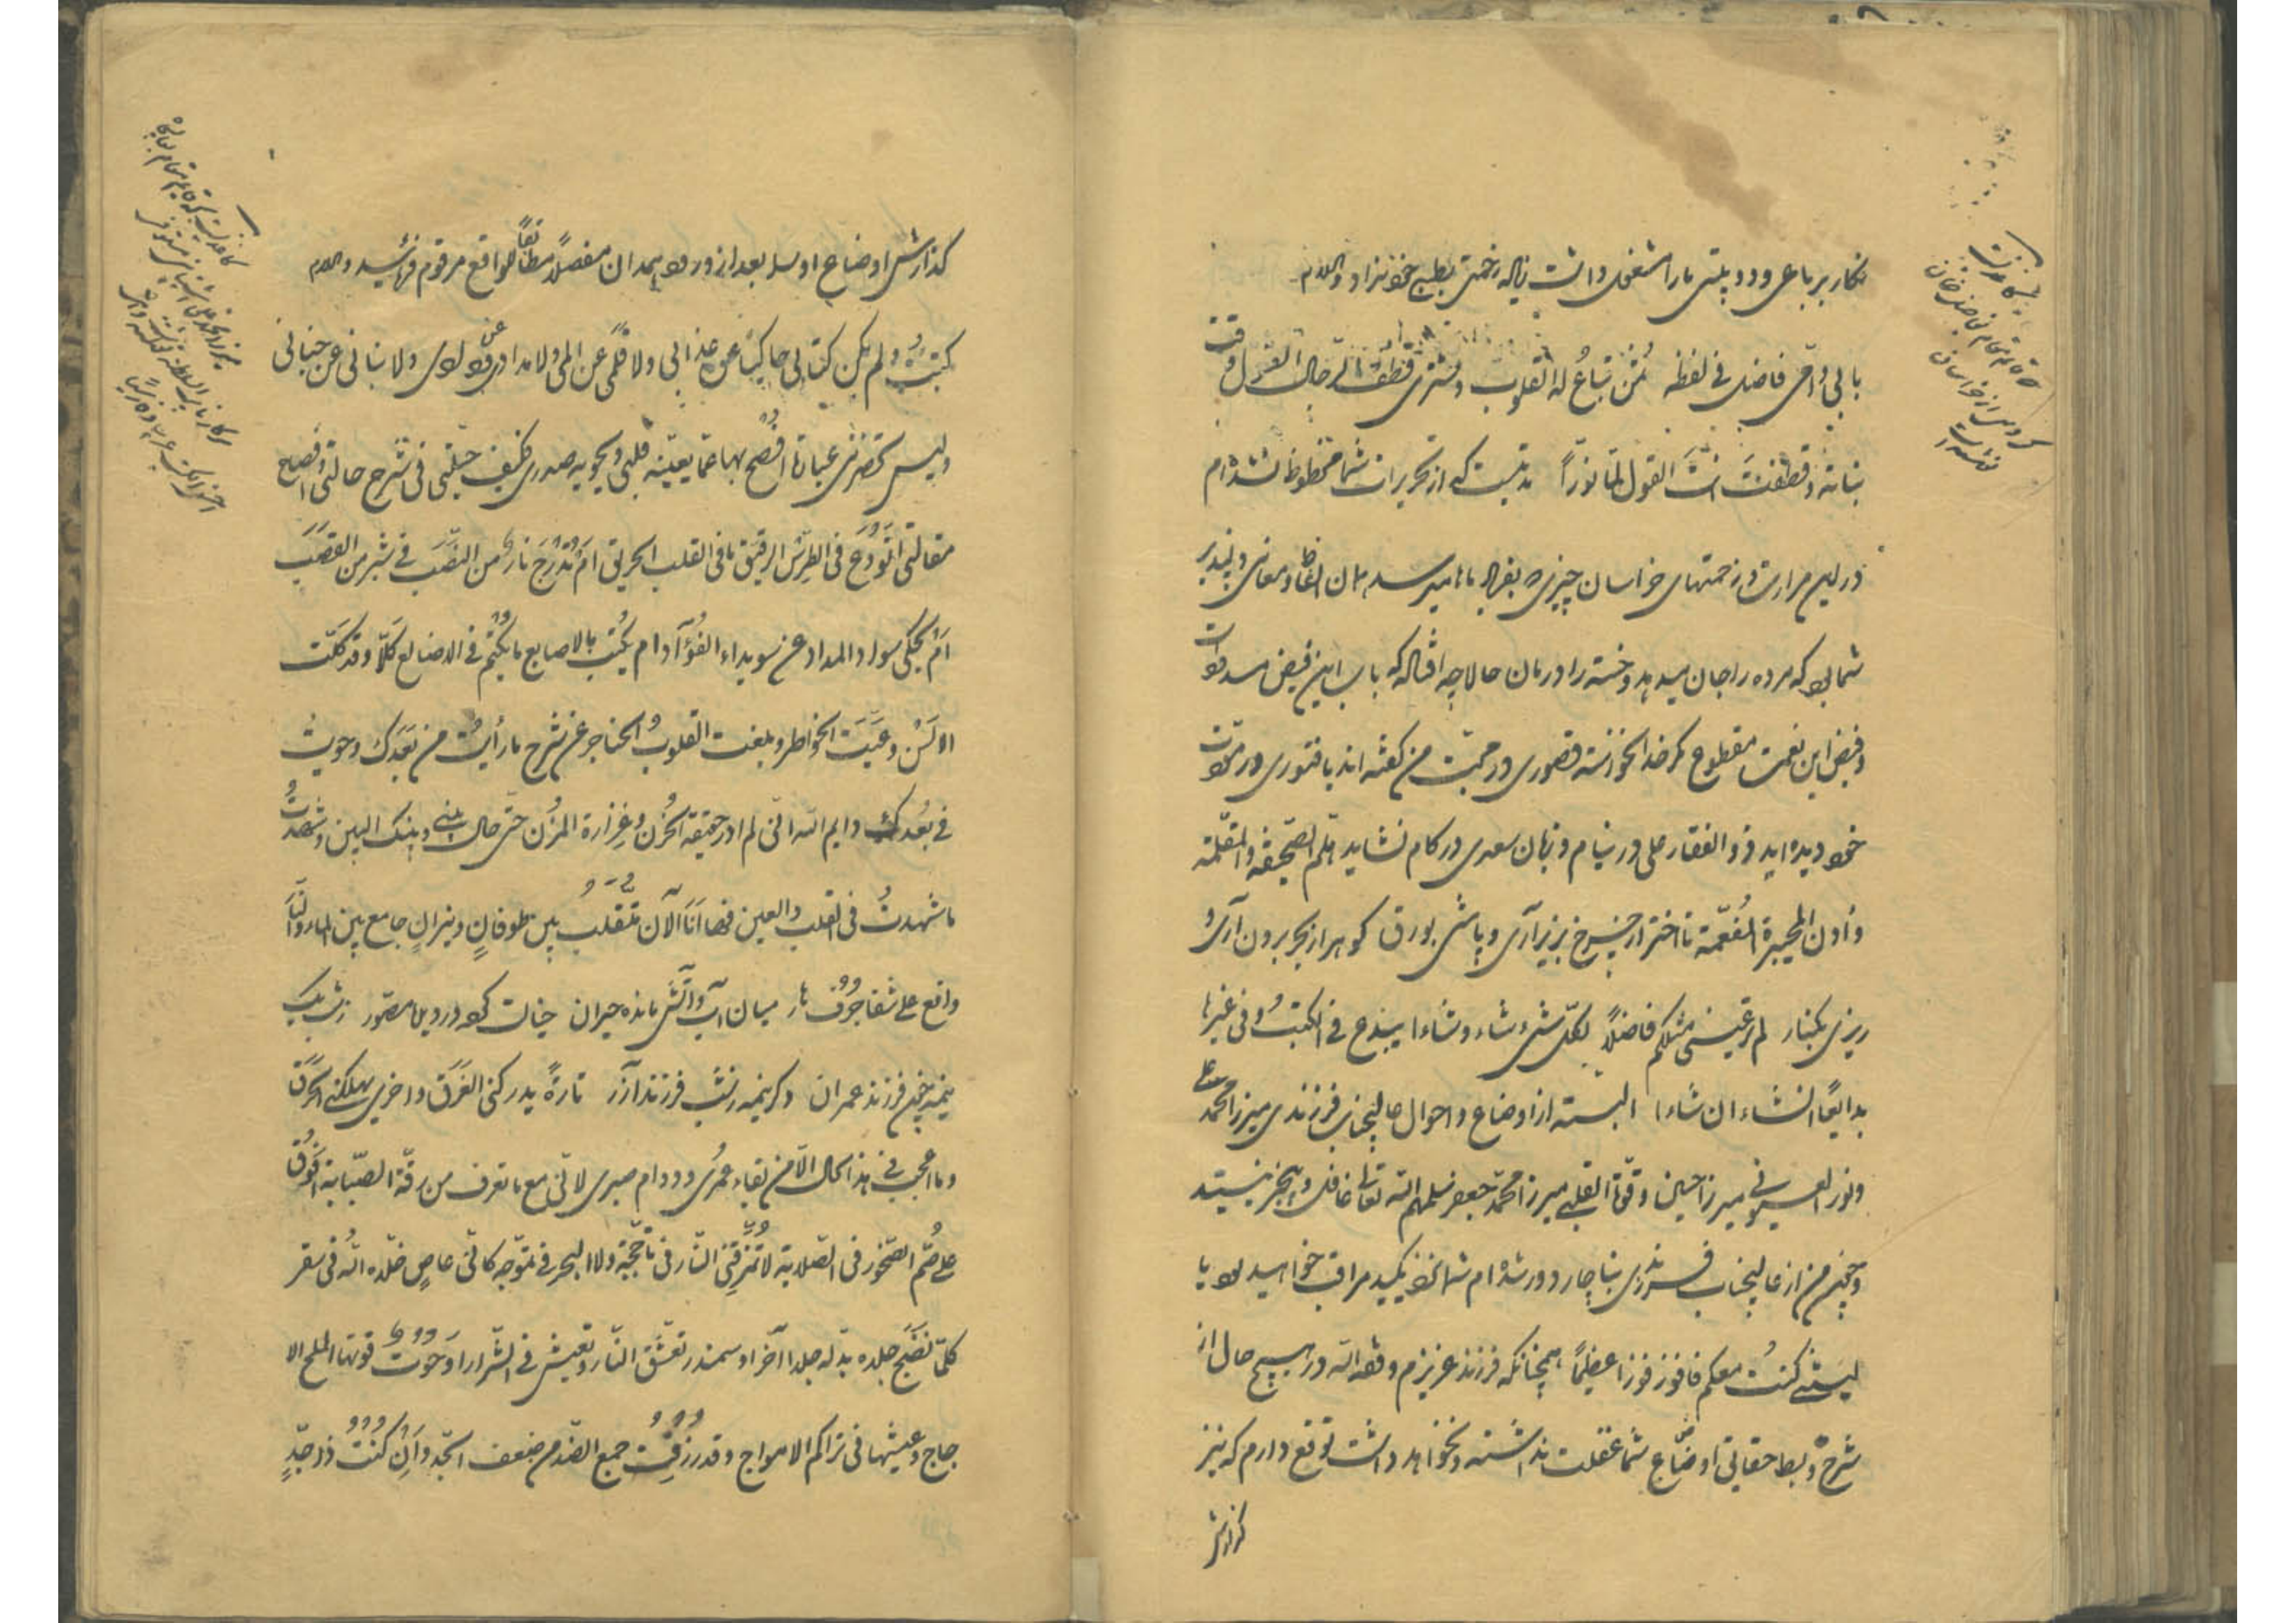 نگار بر باعی و دو بیتی ما را مشغول داشت زیاده زحمتی بطبع خود نداد والسلام
بابی وامی فاضل فی لفظه ثمن تباع له القلوب وتشتری قطف الرجال القول وقت
نباته وقطفت انت القول لما نوّرا مدتیست که از تحریرات شما محظوظ نشده‌ام
در این مرارت و زحمتهای خراسان چیزی که بفریاد ما میرسد همان الفاظ و معانی دلپذیر
شما بود که مرده را جان میدهد و خسته را درمان حالا چه افتاده که باب این فیض مسدود است
و فیض این نعمت مقطوع مگر خدا نخواسته قصوری در محبت من گفته‌اند یا فتوری در مودت
خود دیده‌اید ذوالفقار علی در نیام و زبان سعدی در کام نشاید هلم الصحیفه والمقلمة
وادن المحبرة المفعمة تا اختر از چرخ بزیر آری و پاشی بورق گوهر از بحر برون آری و
ریزی بکنار لم تر عینی مثلکم فاضلاً لکل شیء شاء وشاءا یبدع فی الکتب وفی غیرها
بدایعًا انشاء ان شاءا البته از اوضاع و احوال عالیجناب فرزندی میرزا محمد علی
و نور العینی میرزا حسین و قوة القلبی میرزا محمد جعفر سلمهم الله تعالی غافل و بیخبر نیستید
و چون من از عالیجناب فرزندی بناچار دور شده‌ام شما نزدیکید مراقب خواهید بود یا
لیتنی کنت معکم فافوز فوزا عظیمًا همچنانکه فرزند عزیزم وفقه الله در هیچ حال از
شرح و بسط حقایق اوضاع شما غفلت نداشته و نخواهد داشت توقع دارم که نیز
گزارش
گذارش اوضاع او را بعد از ورود همدان مفصلاً مطابقاً للواقع مرقوم فرمائید والسلام
کتبت ولم یکن کتابی حاکیًا عن عذابی ولا قلمی عن المی ولا مدادی عن ودادی ولا بنانی عن جنانی
ولیس تحضرنی عبارة افصح بها عما یعیّنه قلبی ویحویه صدری فکیف حیلتی فی شرح حالتی وافصاح
مقالتی اتودع فی الطرس الرقیق ما فی القلب الحریق ام تدرج نار من النصب فی شبر من القصب
ام یحکی سواد المداد عن سویداء الفؤآد ام یکتب بالاصابع ما یکتم فی الاضالع کلّا وقد کلّت
الالسن وعیّت الخواطر وبلغت القلوب الحناجر عن شرح ما رأیت من بعدک وحویت
فی بعدک وایم الله انی لم ادر حقیقة الحزن وغزارة المزن حتی حال بینی وبینک البین وشهدت
ما شهدت فی القلب والعین فها انا الآن متقلب بین طوفان ونیران جامع بین الماء والنار
واقع علی شفا جرف هار میان آب و آتش مانده حیران
نیمیم چون فرزند عمران و گر نیمه رنشب فرزند آزر تارةً یدرکنی الغرق واخری یهلکنی الحرق
وما اعجب فی هذا الحال الا من بقاء عمری ودوام صبری لانی مع ما تعرف من رقة الصبابة افوق
علی صم الصخور فی الصلابة لا تمزقنی النار فی تأججه ولا البحر فی تموّجه کانی عاص خلّده الله فی سقر
کلما نضج جلده بدّله جلدا آخر او سمندر تعشق النار وتعیش فی الشرار او حوت قوتها الملح الا
جاج وعیشها فی تراکم الامواج وقد رزقت جمع الضد من ضعف الجد وان کنت ذا جدّ